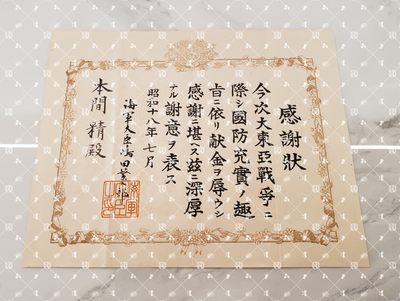 感謝狀
今次大東亞戰爭ニ
際シ國防充實ノ趣
旨ニ依リ献金ヲ辱ウシ
感謝ニ堪ヘス茲ニ深厚
ナル謝意ヲ表ス
昭和十八年七月
海軍大臣嶋田繁太郎
本間精殿